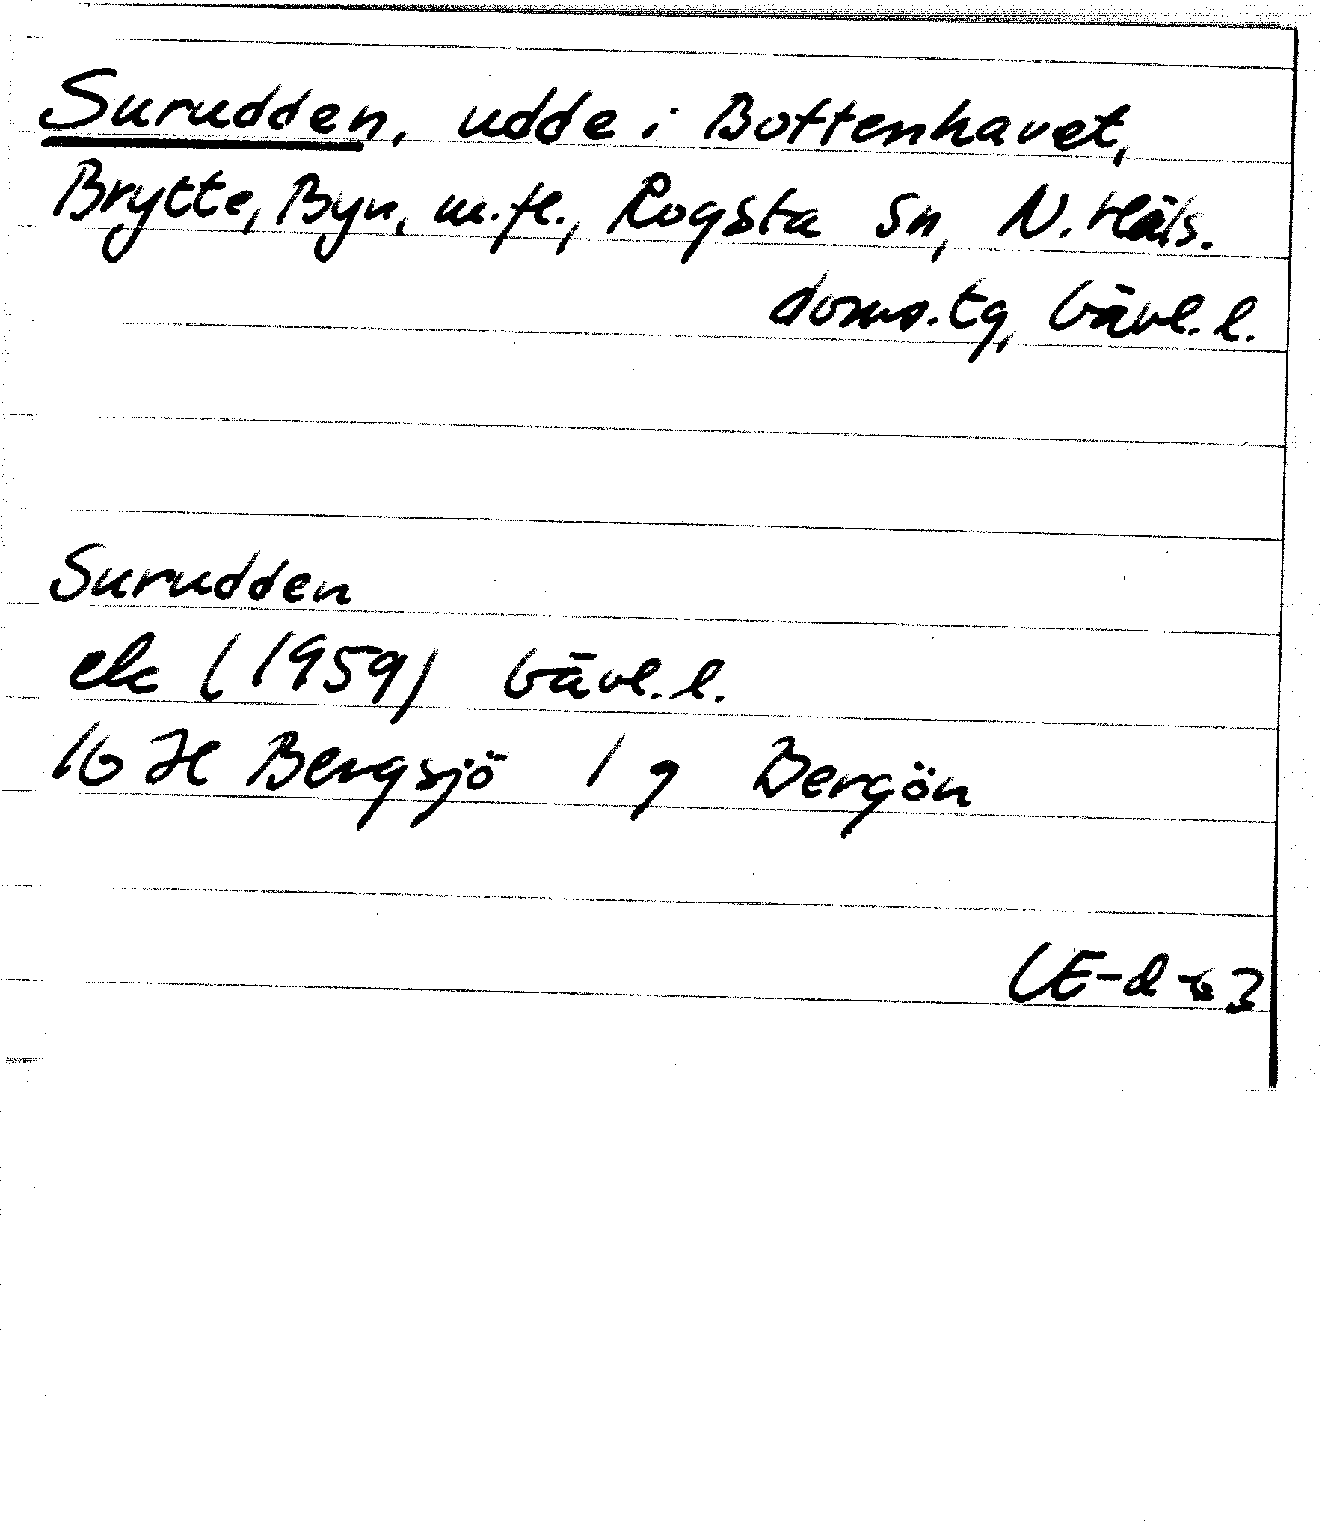 Surudden, udde i Bottenhavet,
Brytte, Byn, m.fl., Rogsta sn, N. Häls.
doms.tg, Gävl. l.
Surudden
ek (1959) Gävl. l.
16 H Bergsjö 1 g Bergön